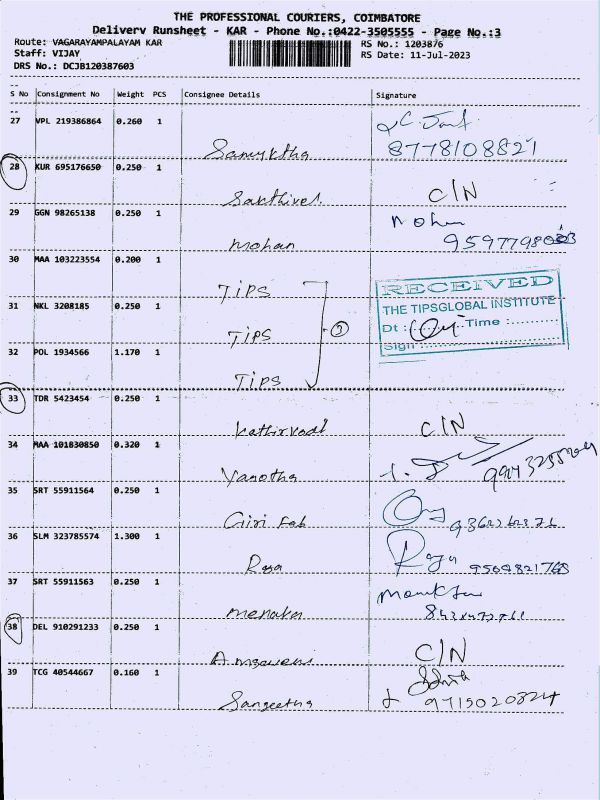 THE PROFESSIONAL COURIERS, COIMBATORE
Delivery Runsheet - KAR - Phone No.:0422-3505555 - Page No.:3
Route: VAGARAYAMPALAYAM KAR
RS No.: 1203876
Staff: VIJAY
RS Date: 11-Jul-2023
DRS No.: DCJB120387603
S No Consignment No Weight PCS Consignee Details Signature
27 VPL 219386864 0.260 1
Samyktha 8778108821
28 KUR 695176650 0.250 1
Sakthivel C/N
29 GGN 98265138 0.250 1 Mohan
Mohan
30 MAA 103223554 0.200 1
TIPS
RECEIVED
THE TIPSGLOBAL INSTITUTE
31 NKL 3208185 0.250 1
TIPS 3
Dt : Time :
Sign
32 POL 1934566 1.170 1
TIPS
33 TDR 5423454 0.250 1
C/N
34 MAA 101830850 0.320 1
35 SRT 55911564 0.250 1
Giri Fab
36 SLM 323785574 1.300 1 Raja
Raja 9509821768
37 SRT 55911563 0.250 1
Menaka
38 DEL 910291233 0.250 1
C/N
39 TCG 40544667 0.160 1
Sangeetha 9715020824